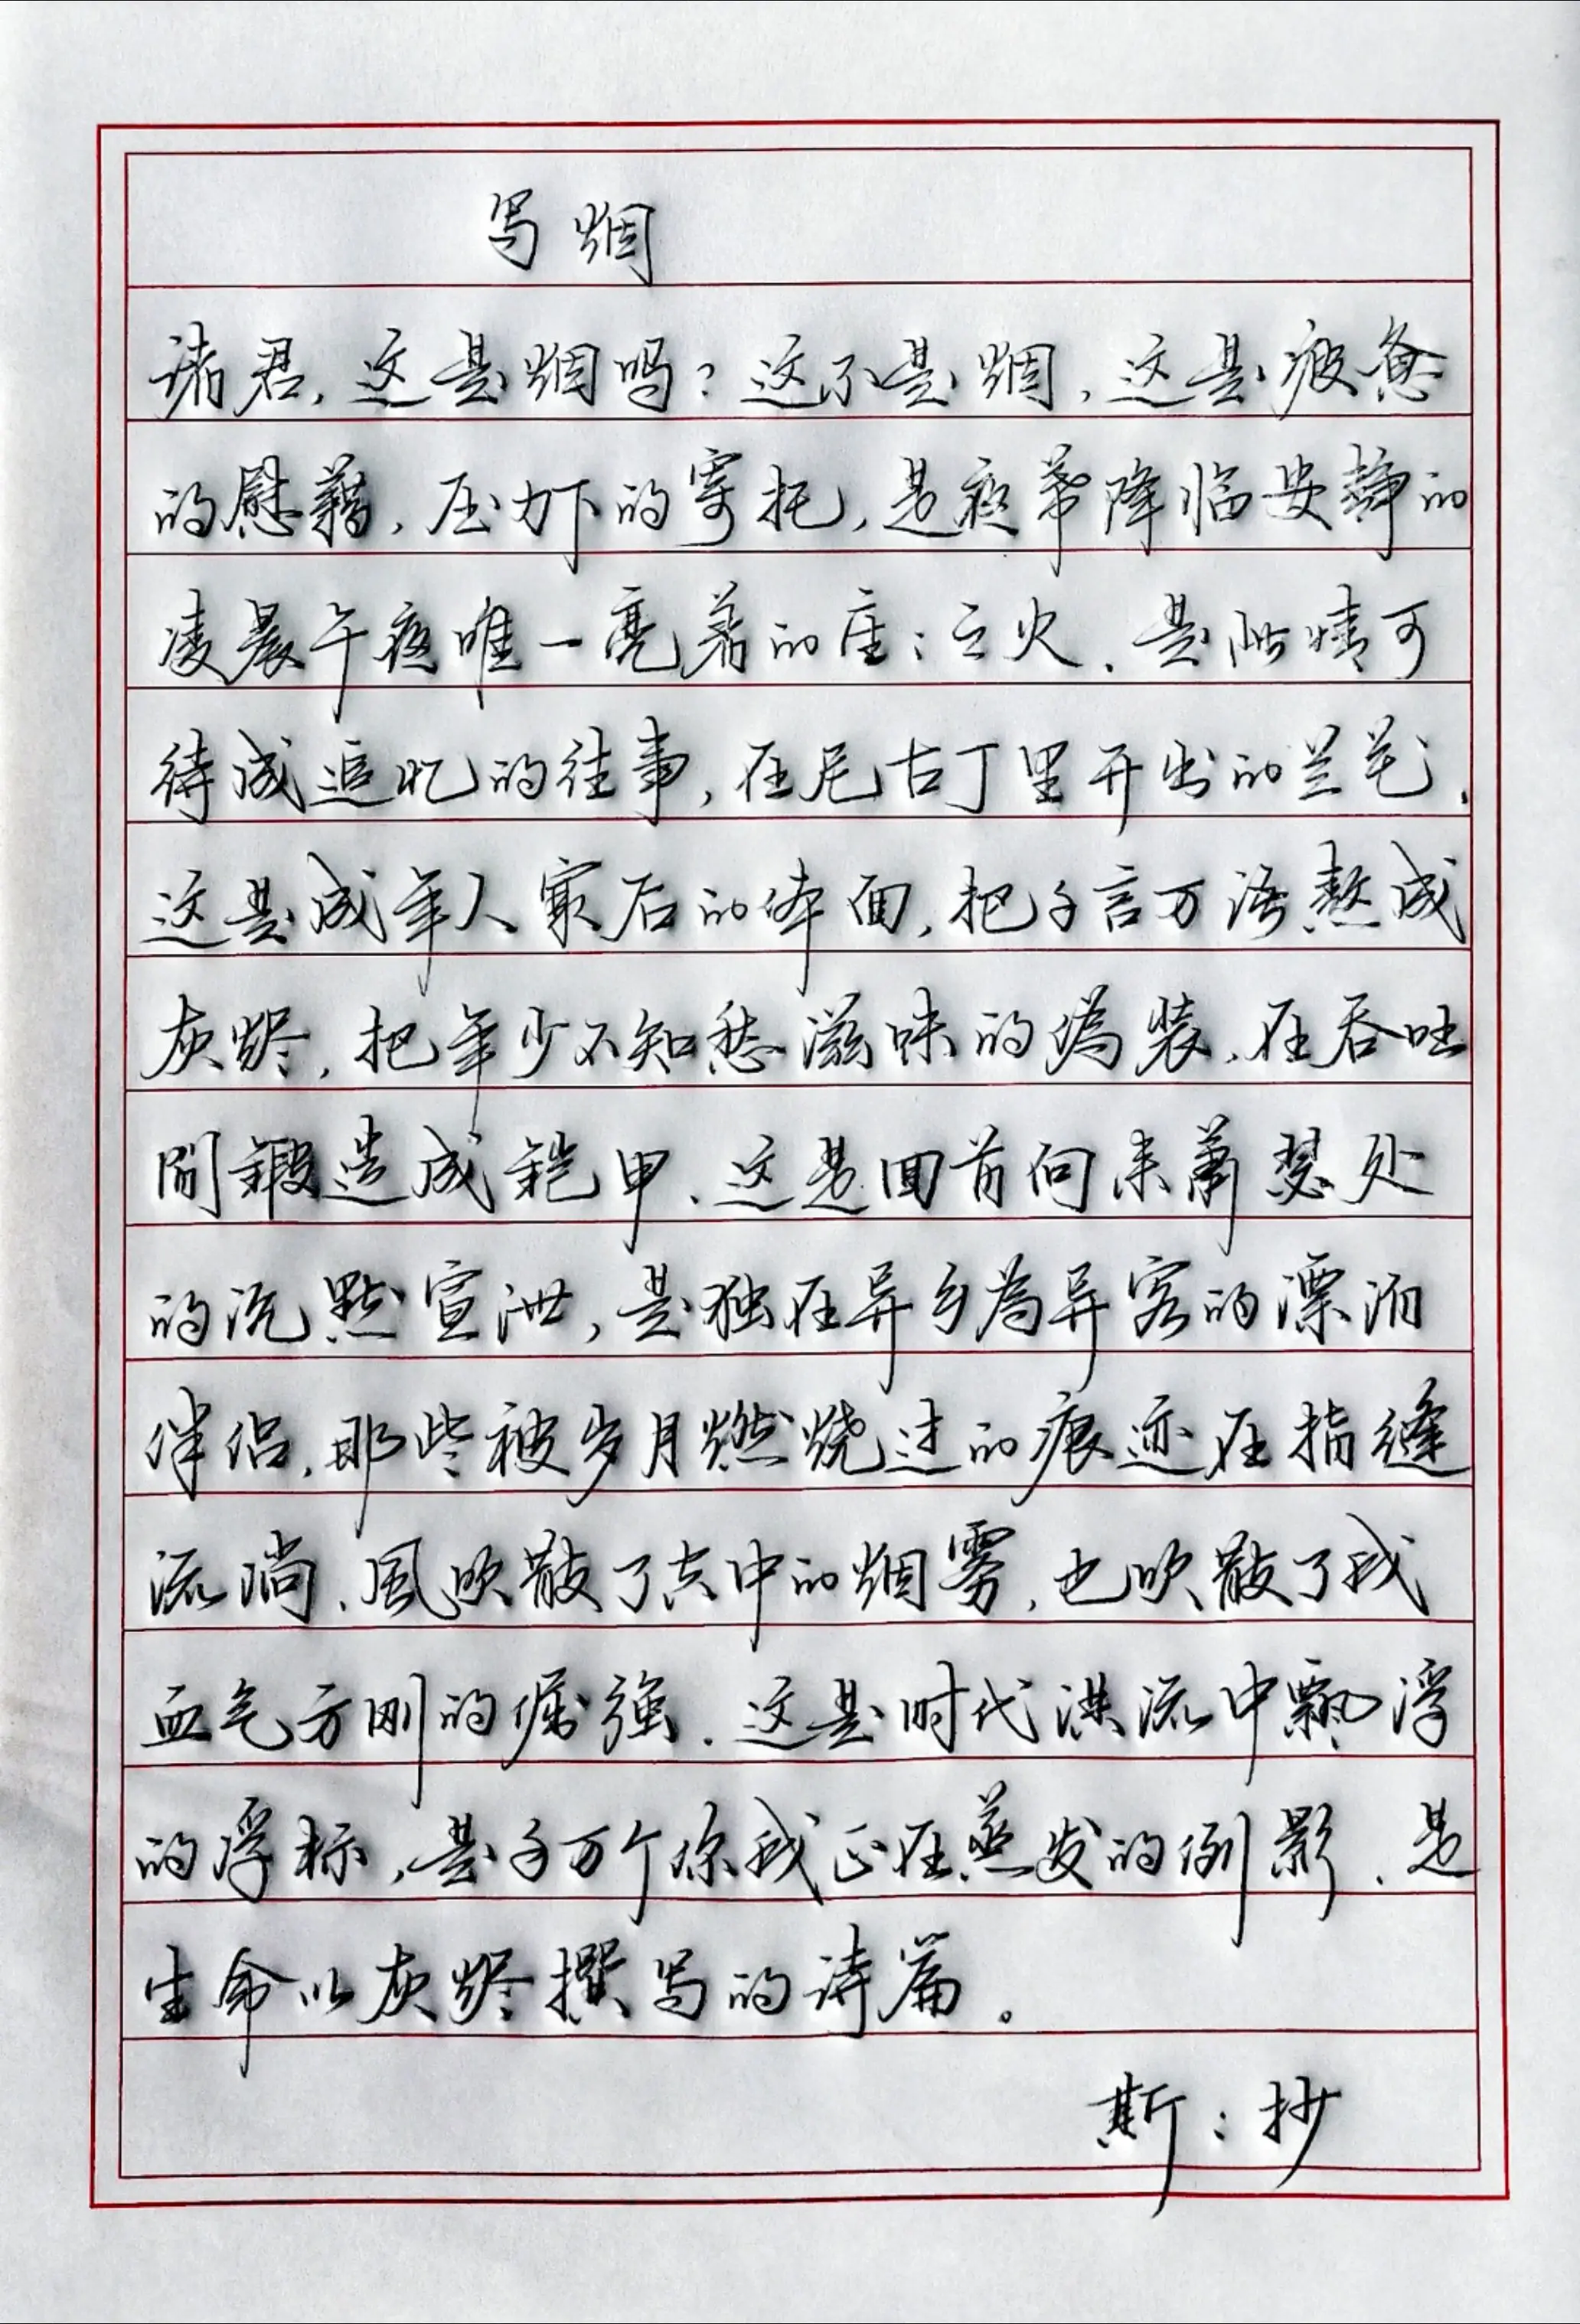 写烟
诸君，这是烟吗？这不是烟，这是疲惫
的慰藉，压力下的寄托，是夜幕降临安静的
凌晨午夜唯一亮着的星星之火，是此情可
待成追忆的往事，在尼古丁里开出的兰花，
这是成年人最后的体面，把千言万语熬成
灰烬，把年少不知愁滋味的伪装，在吞吐
间鍛造成铠甲，这是回首向来萧瑟处
的沉默宣泄，是独在异乡为异客的漂泊
伴侣，那些被岁月燃烧过的痕迹在指缝
流淌，風吹散了空中的烟雾，也吹散了我
血气方刚的倔强，这是时代洪流中飘浮
的浮标，是千万个你我正在蒸发的倒影，是
生命以灰烬撰写的诗篇。
斯：抄